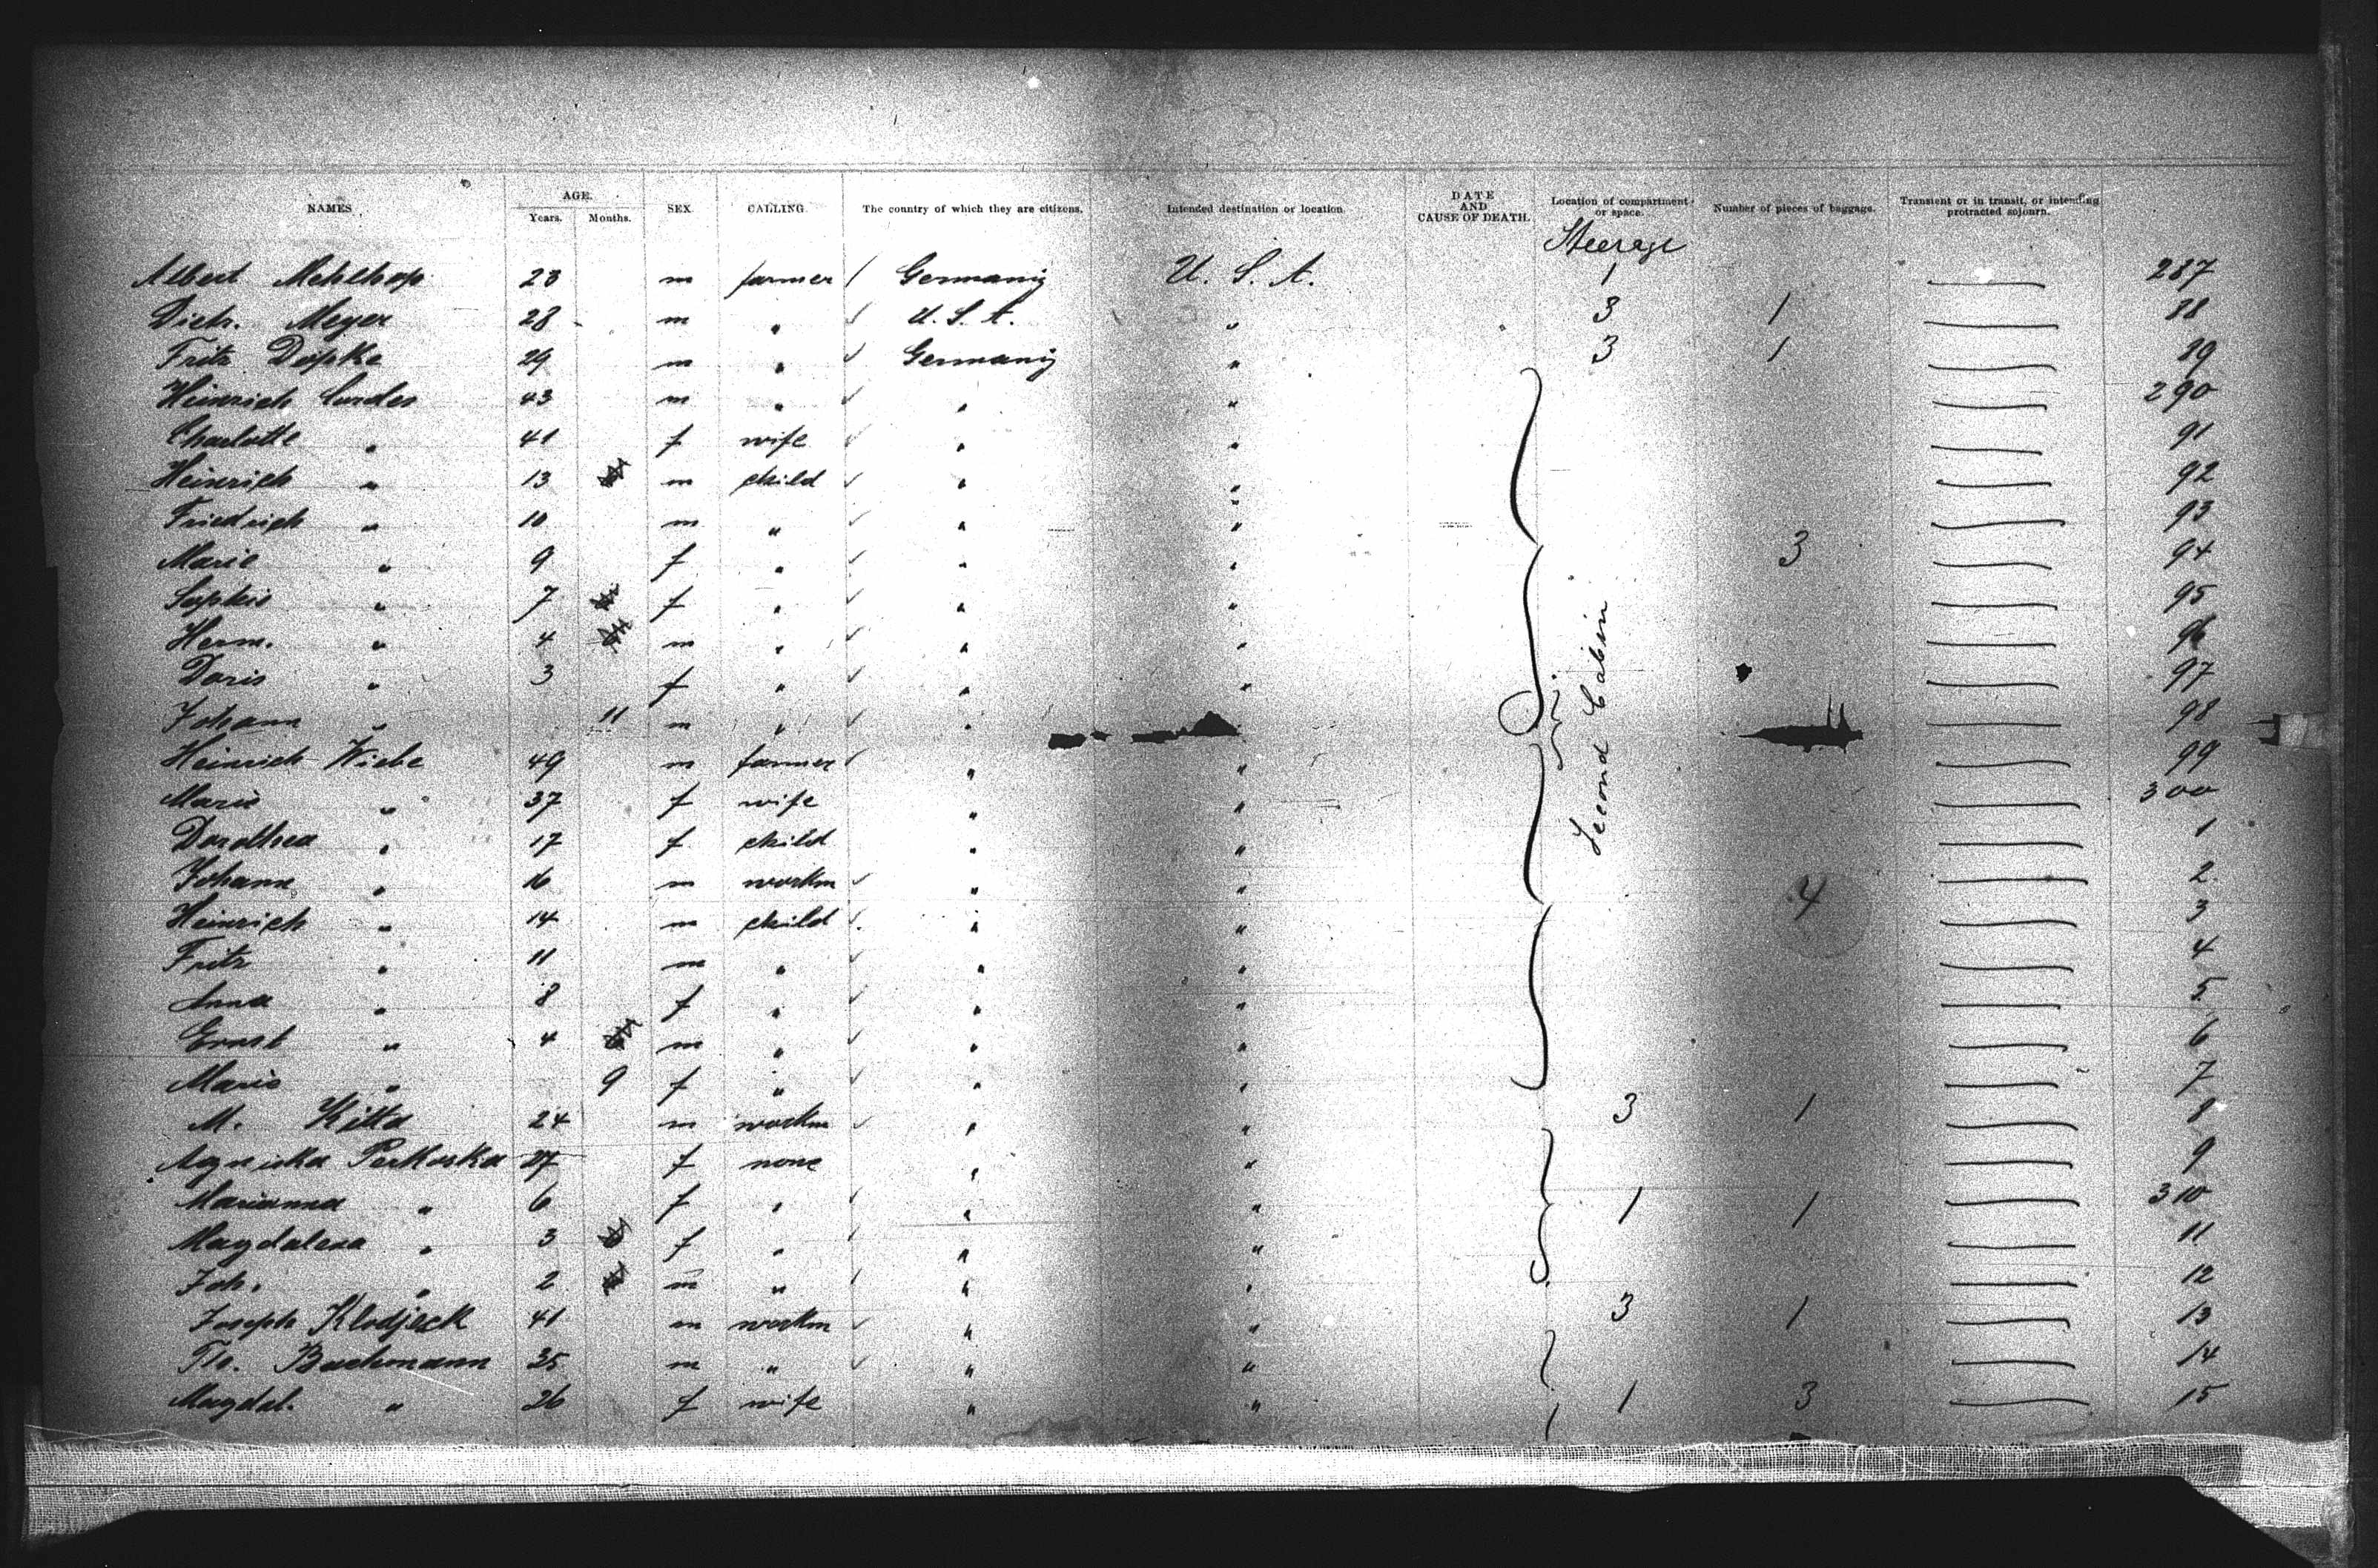 NAMES AGE. Years. Months. SEX CALLING. The country of which they are citizens. Intended destination or location. DATE AND CAUSE OF DEATH. Location of compartment or space. Number of pieces of baggage. Transient or in transit, or intending protracted sojourn.
Steerage
Albert Mehltrop 23 m farmer / Germany U. S. A. 1 287
Dieh. Meyer 28 m " ✓ U. S. A. " 3 1 88
Fritz Döpke 29 m " ✓ Germany " 3 1 89
Heinrich Cordes 43 m " ✓ " " 290
Charlotte " 41 f wife ✓ " " 91
Heinrich " 13 m child ✓ " " 92
Friedrich " 10 m " ✓ " " 93
Marie " 9 f " ✓ " " 3 94
Sophie " 7 f " ✓ " " 95
Herm. " 4 m " ✓ " " 96
Doris " 3 f " ✓ " " 97
Johann " 11 m " ✓ " " 98
Second Cabin
Heinrich Wiebe 49 m farmer ✓ " " 99
Marie " 37 f wife " " 300
Dorothea " 17 f child " " 1
Johann " 16 m workm ✓ " " 2
Heinrich " 14 m child ✓ " " 4 3
Fritz " 11 m " ✓ " " 4
Anna " 8 f " ✓ " " 5
Ernst " 4 m " ✓ " " 6
Marie " 9 f " ✓ " " 7
M. Kitta 24 m workm ✓ " " 3 1 8
Agnieska Perkoska 27 f none " " 9
Marianna " 6 f " ✓ " " 1 1 310
Magdalena " 3 f " ✓ " " 11
Joh. " 2 m " ✓ " " 12
Joseph Klodjeck 41 m workm ✓ " " 3 1 13
Bachmann 35 m " ✓ " " 14
Magdal. " 26 f wife " " 1 3 15